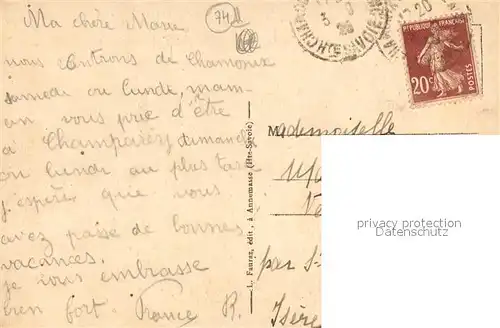 Ma chère Marie
nous rentrons de Chamonix
samedi ou lundi, mam-
an vous prie d'être
à dimanche
ou lundi au plus tard
j'espère que vous
avez passé de bonnes
vacances.
je vous embrasse
bien fort. France R.
74
L. Fauraz, édit., à Annemasse (Hte-Savoie)
RÉPUBLIQUE FRANÇAISE
20c
POSTES
Mademoiselle
par St
Isère
privacy protection
Datenschutz